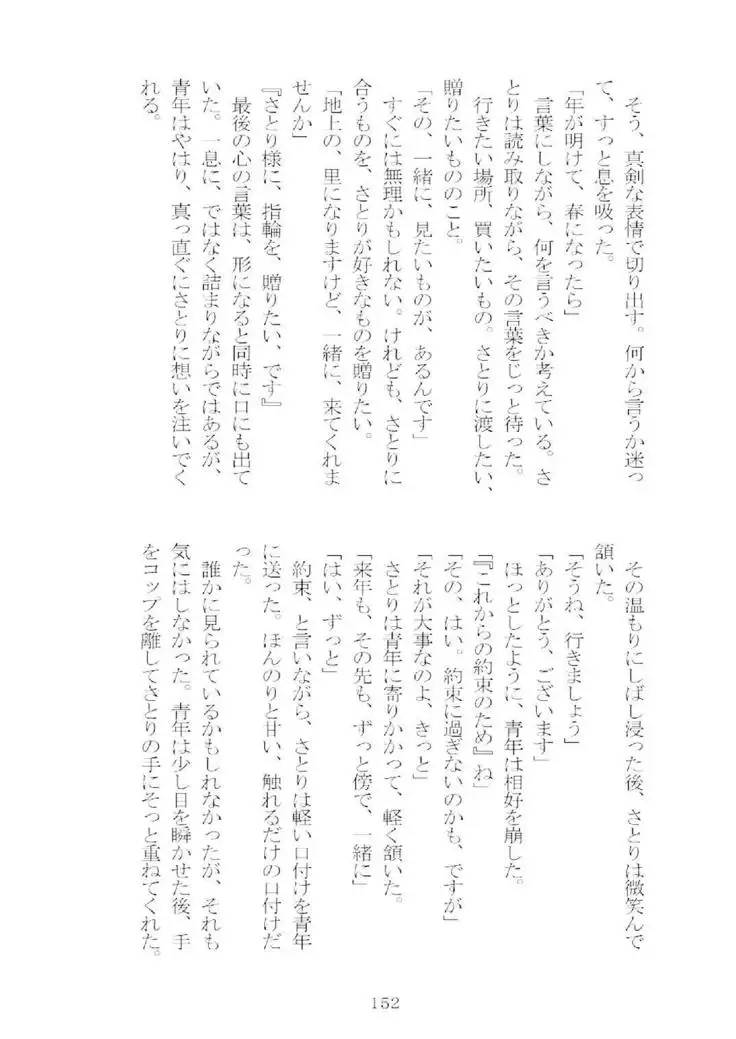 そう、真剣な表情で切り出す。何から言うか迷っ
て、すっと息を吸った。
「年が明けて、春になったら」
言葉にしながら、何を言うべきか考えている。さ
とりは読み取りながら、その言葉をじっと待った。
行きたい場所、買いたいもの。さとりに渡したい、
贈りたいもののこと。
「その、一緒に、見たいものが、あるんです」
すぐには無理かもしれない。けれども、さとりに
合うものを、さとりが好きなものを贈りたい。
「地上の、里になりますけど、一緒に、来てくれま
せんか」
『さとり様に、指輪を、贈りたい、です』
最後の心の言葉は、形になると同時に口にも出て
いた。一息に、ではなく詰まりながらではあるが、
青年はやはり、真っ直ぐにさとりに想いを注いでく
れる。
その温もりにしばし浸った後、さとりは微笑んで
頷いた。
「そうね、行きましょう」
「ありがとう、ございます」
ほっとしたように、青年は相好を崩した。
「『これからの約束のため』ね」
「その、はい。約束に過ぎないのかも、ですが」
「それが大事なのよ、きっと」
さとりは青年に寄りかかって、軽く頷いた。
「来年も、その先も、ずっと傍で、一緒に」
「はい、ずっと」
約束、と言いながら、さとりは軽い口付けを青年
に送った。ほんのりと甘い、触れるだけの口付けだ
った。
誰かに見られているかもしれなかったが、それも
気にはしなかった。青年は少し目を瞬かせた後、手
をコップを離してさとりの手にそっと重ねてくれた。
152